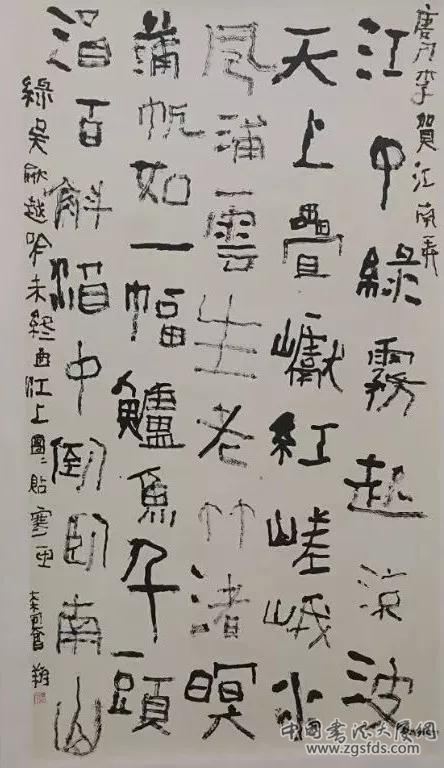 唐人李賀江南弄
江中綠霧起涼波
天上疊巘紅嵯峨水
風浦雲生老竹渚暝
蒲帆如一幅鱸魚千頭
酒百斛酒中倒臥南山
綠吳歈越吟未終曲江上團〻貼寒玉
www.zgsfds.com